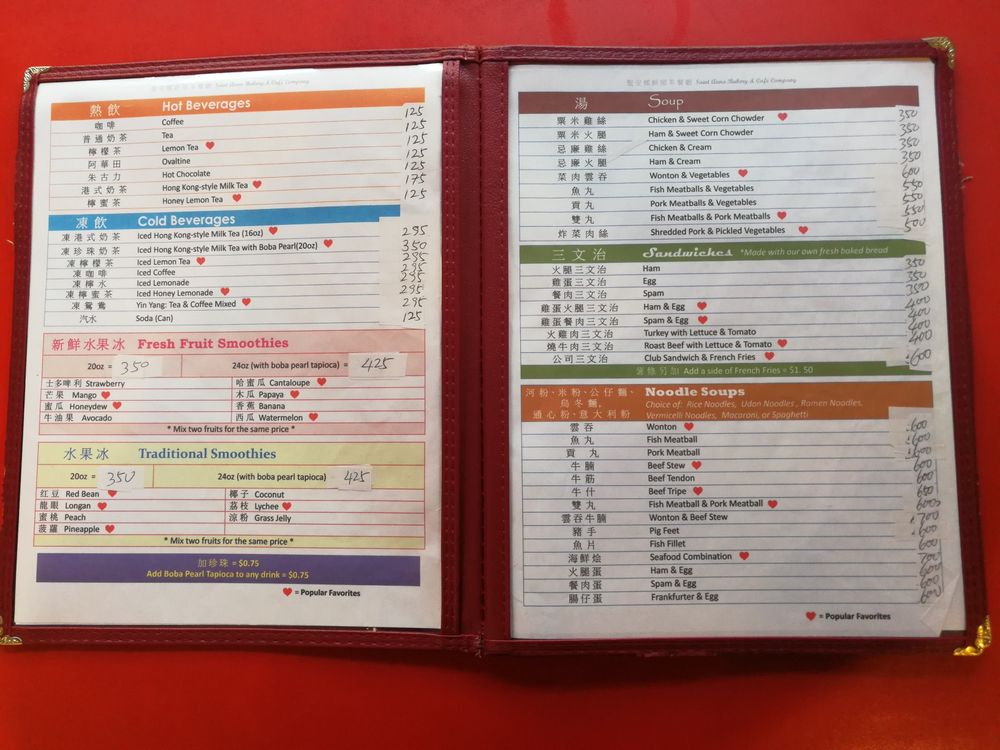 Saint Anna Bakery & Cafe Company
熱飲 Hot Beverages
咖啡 Coffee 125
普通奶茶 Tea 125
檸檬茶 Lemon Tea 125
阿華田 Ovaltine 125
朱古力 Hot Chocolate 125
港式奶茶 Hong Kong-style Milk Tea 175
檸蜜茶 Honey Lemon Tea 125
凍飲 Cold Beverages
凍港式奶茶 Iced Hong Kong-style Milk Tea (16oz) 295
凍珍珠奶茶 Iced Hong Kong-style Milk Tea with Boba Pearl(20oz) 350
凍檸檬茶 Iced Lemon Tea 295
凍咖啡 Iced Coffee 295
凍檸水 Iced Lemonade 295
凍檸蜜茶 Iced Honey Lemonade 295
凍鴛鴦 Yin Yang: Tea & Coffee Mixed 295
汽水 Soda (Can) 125
新鮮水果冰 Fresh Fruit Smoothies
20oz = 350 24oz (with boba pearl tapioca) = 425
士多啤利 Strawberry 哈蜜瓜 Cantaloupe
芒果 Mango 木瓜 Papaya
蜜瓜 Honeydew 香蕉 Banana
牛油果 Avocado 西瓜 Watermelon
* Mix two fruits for the same price *
水果冰 Traditional Smoothies
20oz = 350 24oz (with boba pearl tapioca) = 425
红豆 Red Bean 椰子 Coconut
龍眼 Longan 荔枝 Lychee
蜜桃 Peach 涼粉 Grass Jelly
菠蘿 Pineapple
* Mix two fruits for the same price *
加珍珠 = $0.75
Add Boba Pearl Tapioca to any drink = $0.75
= Popular Favorites
Saint Anna Bakery & Cafe Company
湯 Soup
粟米雞絲 Chicken & Sweet Corn Chowder 350
粟米火腿 Ham & Sweet Corn Chowder 350
忌廉雞絲 Chicken & Cream 350
忌廉火腿 Ham & Cream 350
菜肉雲吞 Wonton & Vegetables 600
魚丸 Fish Meatballs & Vegetables 550
貢丸 Pork Meatballs & Vegetables 550
雙丸 Fish Meatballs & Pork Meatballs 550
炸菜肉絲 Shredded Pork & Pickled Vegetables 500
三文治 Sandwiches *Made with our own fresh baked bread
火腿三文治 Ham 350
雞蛋三文治 Egg 350
餐肉三文治 Spam 350
雞蛋火腿三文治 Ham & Egg 400
雞蛋餐肉三文治 Spam & Egg 400
火雞肉三文治 Turkey with Lettuce & Tomato 400
燒牛肉三文治 Roast Beef with Lettuce & Tomato
公司三文治 Club Sandwich & French Fries 600
薯條另加 Add a side of French Fries = $1.50
河粉、米粉、公仔麵、
烏冬麵，
通心粉、意大利粉
Noodle Soups
Choice of: Rice Noodles, Udon Noodles, Ramen Noodles,
Vermicelli Noodles, Macaroni, or Spaghetti
雲吞 Wonton 600
魚丸 Fish Meatball 600
貢丸 Pork Meatball 600
牛腩 Beef Stew 600
牛筋 Beef Tendon 600
牛什 Beef Tripe 650
雙丸 Fish Meatball & Pork Meatball 600
雲吞牛腩 Wonton & Beef Stew 700
豬手 Pig Feet 600
魚片 Fish Fillet 600
海鮮燴 Seafood Combination 700
火腿蛋 Ham & Egg 600
餐肉蛋 Spam & Egg 600
腸仔蛋 Frankfurter & Egg 600
= Popular Favorites